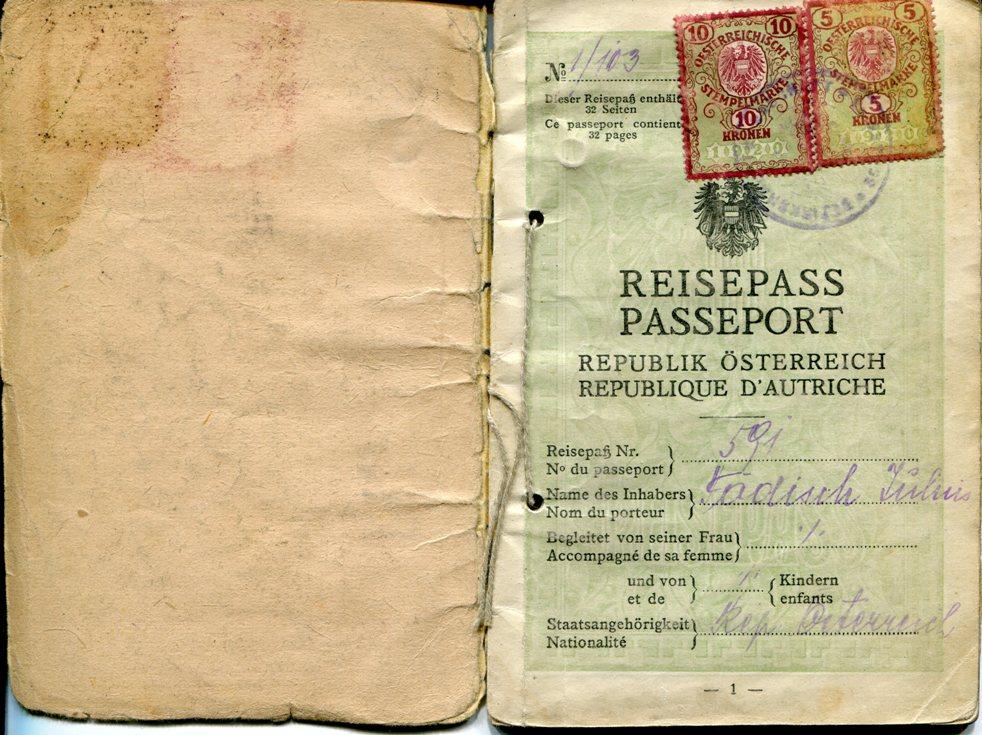 № 1/103
Dieser Reisepaß enthält
32 Seiten
Ce passeport contient
32 pages
10 10
OESTERREICHISCHE
STEMPELMARKE
10
KRONEN
5 5
OESTERREICHISCHE
STEMPELMARKE
5
KRONEN
REISEPASS
PASSEPORT
REPUBLIK ÖSTERREICH
REPUBLIQUE D'AUTRICHE
Reisepaß Nr.
No du passeport
591
Name des Inhabers
Nom du porteur
Julius
Begleitet von seiner Frau
Accompagné de sa femme
und von
et de
Kindern
enfants
Staatsangehörigkeit
Nationalité
Rep. Österreich
— 1 —